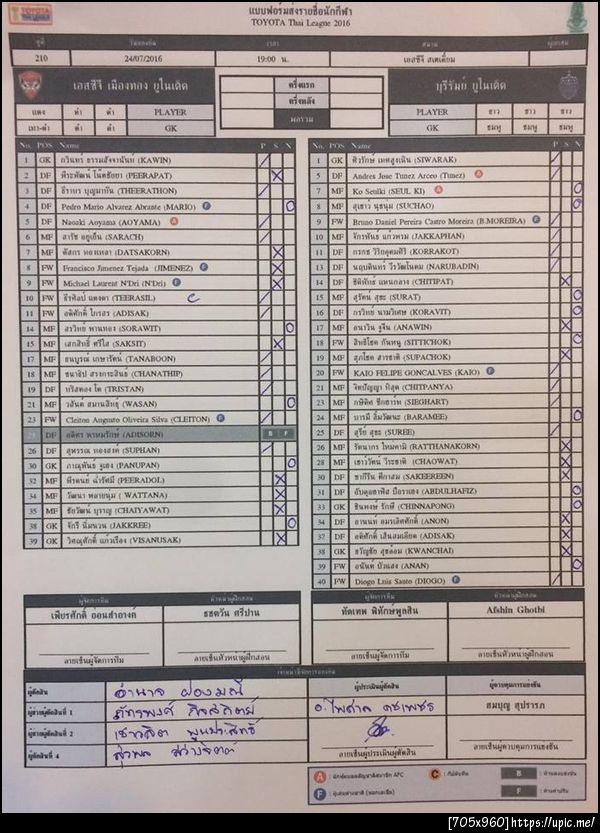 แบบฟอร์มส่งรายชื่อนักกีฬา
TOYOTA Thai League 2016
คู่ที่ วันแข่งขัน เวลา สนาม
210 24/07/2016 19:00 น. เอสซีจี สเตเดี้ยม
เอสซีจี เมืองทอง ยูไนเต็ด ครึ่งแรก บุรีรัมย์ ยูไนเต็ด
ครึ่งหลัง
แดง ดำ ดำ PLAYER ผลรวม PLAYER ขาว ขาว ขาว
เทา-ดำ ดำ ดำ GK GK ชมพู ชมพู ชมพู
No. POS Name P S N
1 GK กวินทร์ ธรรมสัจจานันท์ (KAWIN)
2 DF พีระพัฒน์ โน๊ตชัยยา (PEERAPAT)
3 DF ธีราทร บุญมาทัน (THEERATHON)
4 DF Pedro Mario Alvarez Abrante (MARIO) F
5 DF Naoaki Aoyama (AOYAMA) A
6 MF สารัช อยู่เย็น (SARACH)
7 MF ดัสกร ทองเหลา (DATSAKORN)
8 FW Francisco Jimenez Tejada (JIMENEZ) F
9 FW Michael Laurent N'Dri (N'Dri) F
10 FW ธีรศิลป์ แดงดา (TEERASIL) C
11 FW อดิศักดิ์ ไกรษร (ADISAK)
14 MF สรวิทย์ พานทอง (SORAWIT)
15 MF เสกสิทธิ์ ศรีใส (SAKSIT)
17 MF ธนบูรณ์ เกษารัตน์ (TANABOON)
18 MF ชนาธิป สรงกระสินธ์ (CHANATHIP)
19 DF ทริสตอง โด (TRISTAN)
21 MF วสันต์ สมานสิทธุ์ (WASAN)
23 FW Cleiton Augusto Oliveira Silva (CLEITON) F
25 DF อดิศร พรหมรักษ์ (ADISORN) B F
26 DF สุพรรณ ทองสงค์ (SUPHAN)
30 GK ภาณุพันธ์ จูเฮง (PANUPAN)
32 MF พีรดนย์ ฉ่ำรัศมี (PEERADOL)
34 MF วัฒนา พลายนุ่ม ( WATTANA)
35 MF ชัยวัฒน์ บุราญ (CHAIYAWAT)
38 GK จักรี นิ่มนวน (JAKKREE)
39 GK วิศณุศักดิ์ แก้วเรือง (VISANUSAK)
No. POS Name P S N
1 GK ศิวรักษ์ เทศสูงเนิน (SIWARAK)
5 DF Andres Jose Tunez Arceo (Tunez) A
7 MF Ko Seulki (SEUL KI) A
8 MF สุเชาว์ นุชนุ่ม (SUCHAO)
9 FW Bruno Daniel Pereira Castro Moreira (B.MOREIRA) F
10 MF จักรพันธ์ แก้วพรม (JAKKAPHAN)
11 DF กรกช วิริยอุดมศิริ (KORRAKOT)
13 DF นฤบดินทร์ วีรวัฒโนดม (NARUBADIN)
14 DF ชิติพัทธ์ แทนกลาง (CHITIPAT)
15 MF สุรัตน์ สุขะ (SURAT)
16 DF กรวิทย์ นามวิเศษ (KORAVIT)
17 MF อนาวิน จูจีน (ANAWIN)
18 FW สิทธิโชค กันหนู (SITTICHOK)
19 MF สุภโชค สารชาติ (SUPACHOK)
20 FW KAIO FELIPE GONCALVES (KAIO) F
21 MF จิตปัญญา ทิสุด (CHITPANYA)
23 MF กษิดิศ ซีกฮาร์ท (SIEGHART)
24 MF บารมี ลิ้มวัฒนะ (BARAMEE)
25 DF สุรีย์ สุขะ (SUREE)
26 MF รัตนากร ใหม่คามิ (RATTHANAKORN)
28 MF เชาว์วัตน์ วีระชาติ (CHAOWAT)
30 DF ซากีรีน ตีกาสม (SAKEEREEN)
31 DF อับดุลฮาฟิส บือราเฮง (ABDULHAFIZ)
33 GK ชินพงษ์ รักษี (CHINNAPONG)
34 DF อานนท์ อมรเลิศศักดิ์ (ANON)
37 DF อดิศักดิ์ เส็นสมเอียด (ADISAK)
38 GK ขวัญชัย สุขล้อม (KWANCHAI)
39 FW อนันต์ บัวแสง (ANAN)
40 FW Diogo Luis Santo (DIOGO) F
ผู้จัดการทีม หัวหน้าผู้ฝึกสอน ผู้จัดการทีม หัวหน้าผู้ฝึกสอน
เพียรศักดิ์ อ่อนสำอางค์ ธชตวัน ศรีปาน ทัดเทพ พิทักษ์พูลสิน Afshin Ghotbi
ลายเซ็นผู้จัดการทีม ลายเซ็นหัวหน้าผู้ฝึกสอน ลายเซ็นผู้จัดการทีม ลายเซ็นหัวหน้าผู้ฝึกสอน
เจ้าหน้าที่จัดการแข่งขัน
ผู้ตัดสิน อำนาจ ผ่องมณี ผู้ประเมินผู้ตัดสิน ผู้ควบคุมการแข่งขัน
ผู้ช่วยผู้ตัดสินที่ 1 ภัทรพงศ์ กิจสถิตย์ สมบุญ สุปรารภ
ผู้ช่วยผู้ตัดสินที่ 2 เชาวลิต พูนประสิทธิ์
ผู้ตัดสินที่ 4 สุวพล สว่างจิตต์ ลายเซ็นผู้ประเมินผู้ตัดสิน ลายเซ็นผู้ควบคุมการแข่งขัน
A C : กัปตันทีม B
F F
[705x960]https://upic.me/